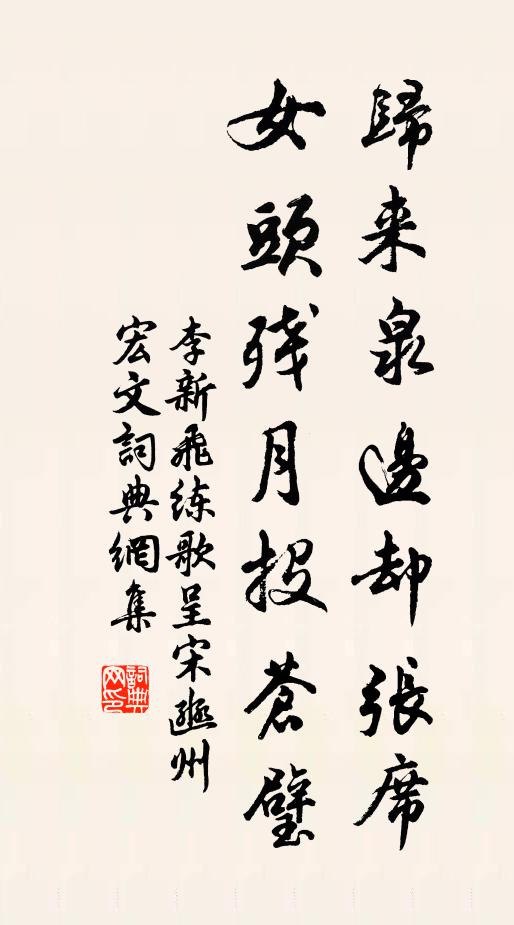 歸来泉邊却張席
女頭残月投蒼璧
李新飛练歌呈宋遂州
宏文詞典網集
詞典
网印